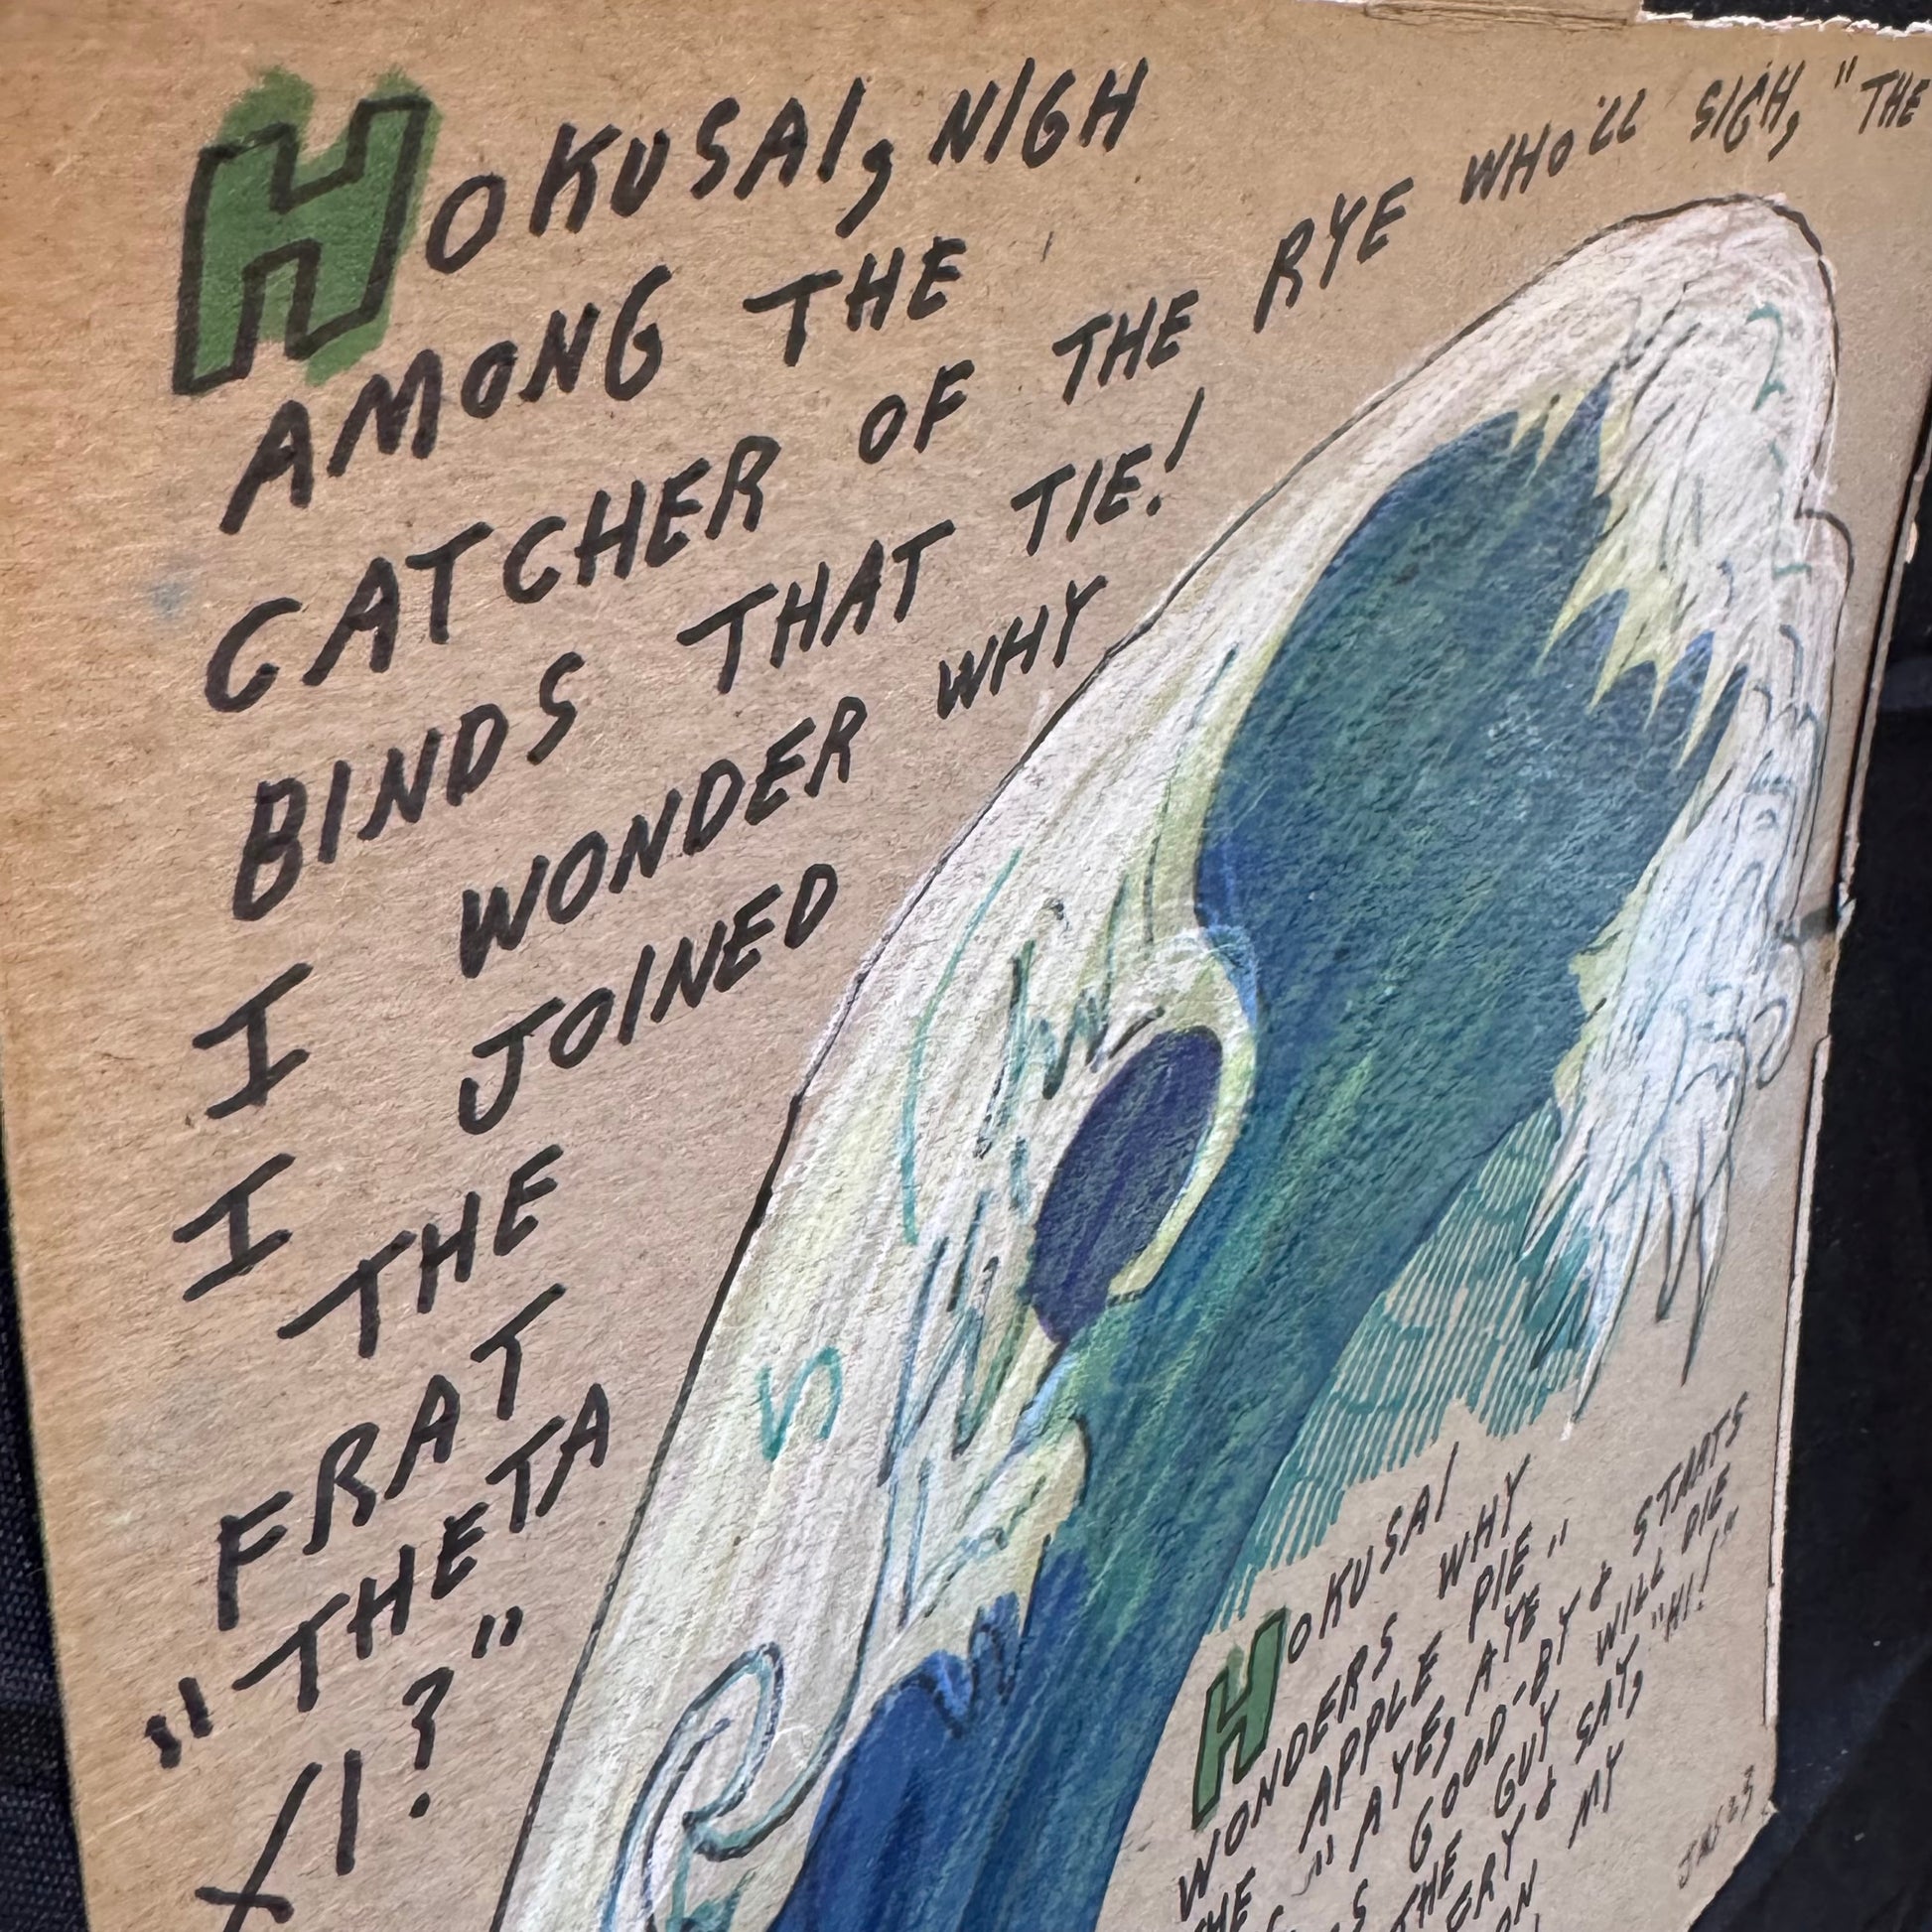 HOKUSAI, NIGH
AMONG THE
CATCHER OF THE RYE WHO'LL SIGH, "THE
BINDS THAT TIE!
I WONDER WHY
I JOINED
THE
FRAT
"THETA
XI?"
HOKUSAI
WONDERS WHY
THE APPLE PIE
"AYES, AYE"
GOOD-BY & STARTS
THE GUY WILL DIE
CRY & SAY, "HI!"
ON MY
JMS 23